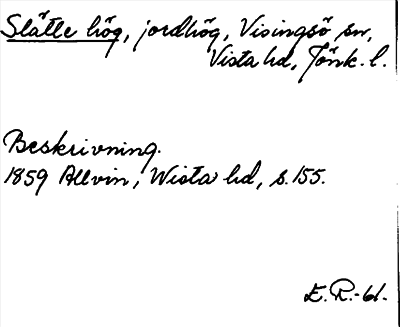 Slätte hög, jordhög, Visingsö sn,
Vista hd, Jönk. l.
Beskrivning.
1859 Allvin, Wista hd, s. 155.
E. R.-61.